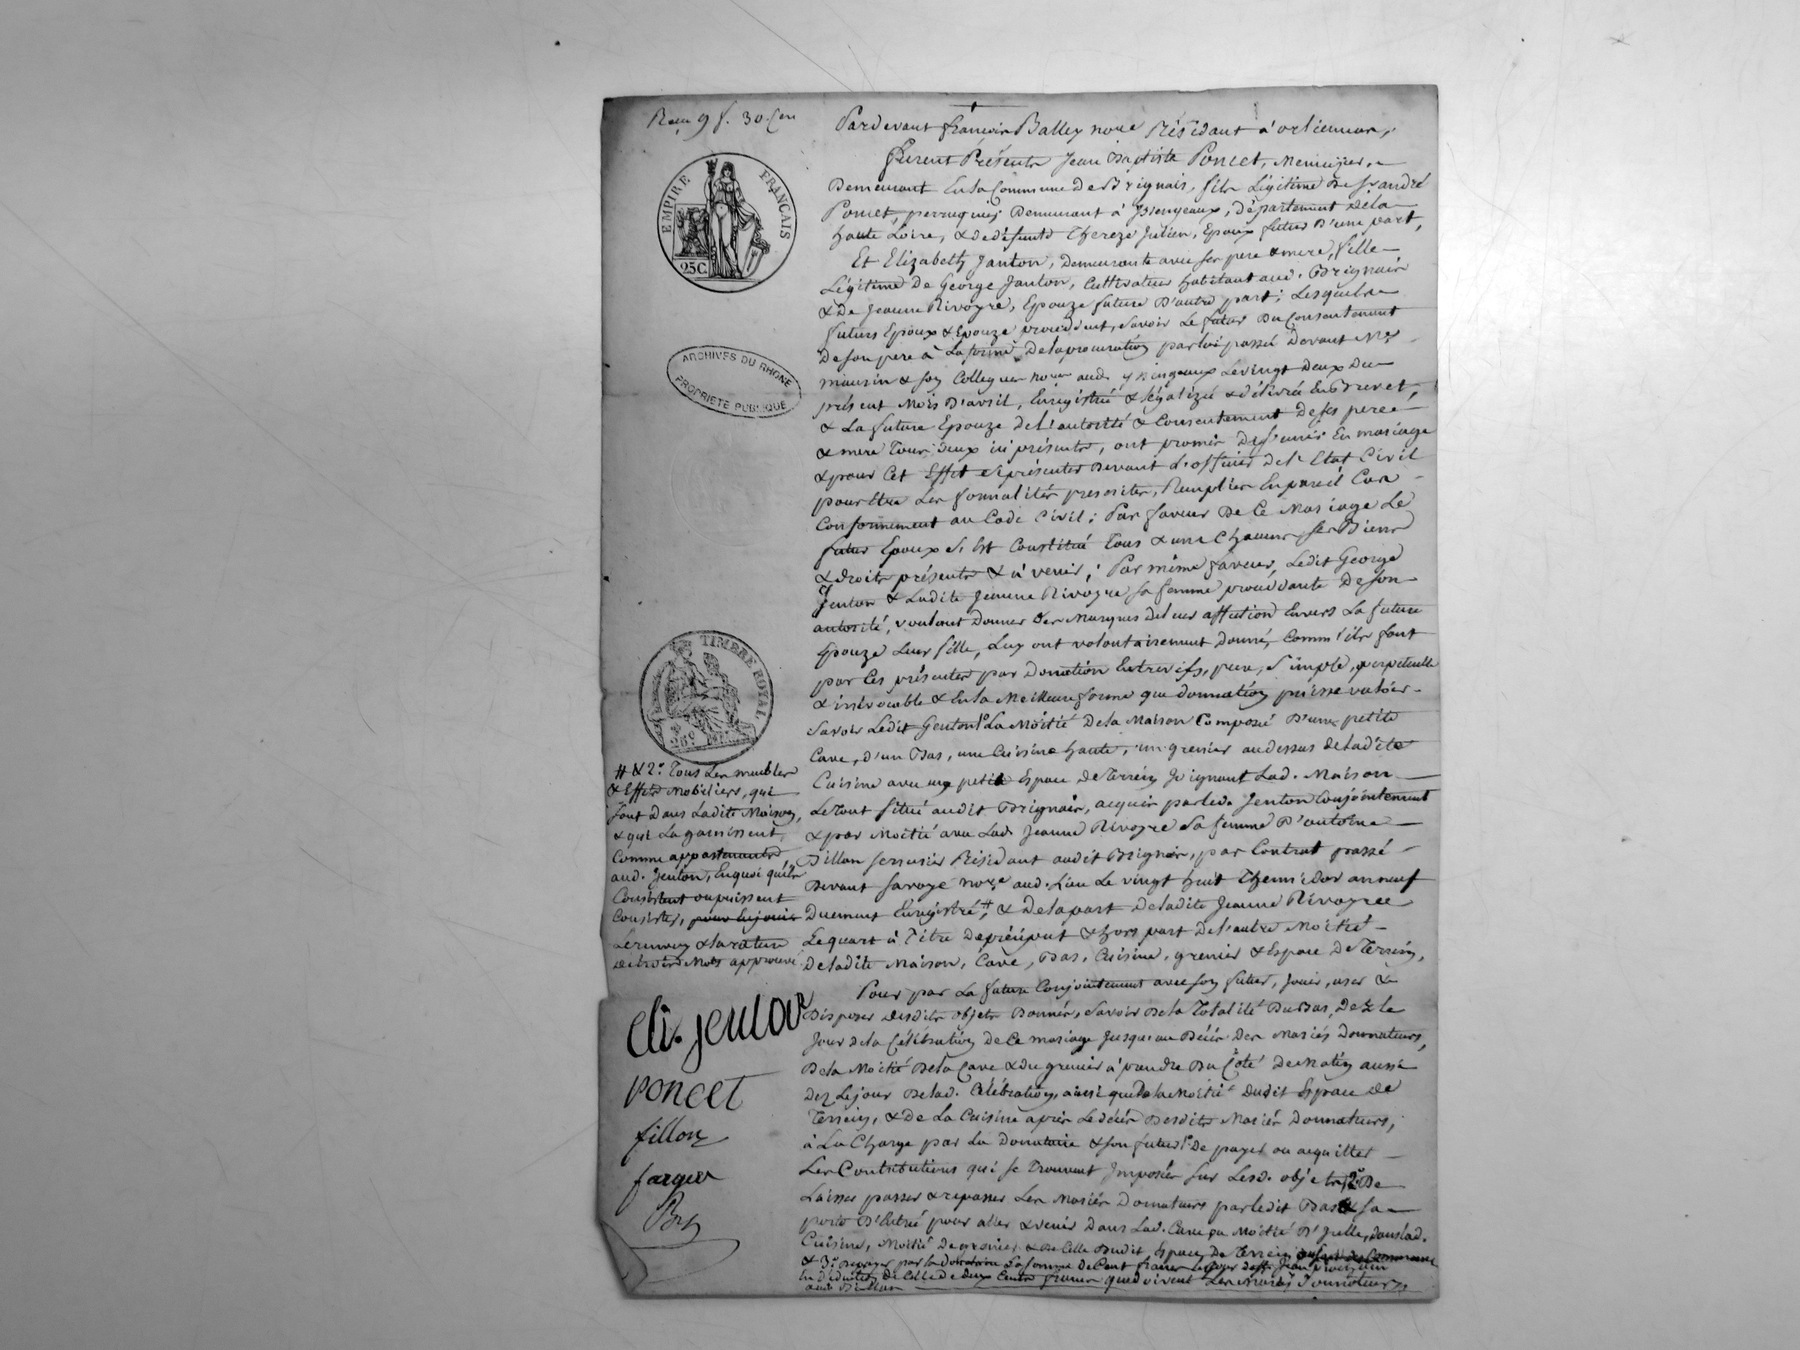 Reçu 9 f. 30 Cen
EMPIRE FRANÇAIS
25C.
ARCHIVES DU RHONE
PROPRIETE PUBLIQUE
TIMBRE ROYAL
Pardevant françois Balley no.re Résidant à orlienas,
furent Présents Jean Baptiste Poncet, Menuisier,
Demeurant En la Commune De Brignais, fils Légitime De S. andré
Poncet, perruquier Demeurant à Yssengeaux, Département de la
haute Loire, & de défunte Thereze Julien, Epoux futur D'une part,
Et Elizabeth Janton, Demeurante avec ses pere & mere, fille
Légitime De George Janton, Cultivateur habitant aud. Brignais
& De Jeanne Rivoyre, Epouze future D'autre part; Lesquels
futurs Epoux & Epouze procedent, Savoir Le futur Du Consentement
De son pere à La forme De la procuration par lui passée Devant M.es
miaurin & son Collegue no.res aud. yssingeaux Le vingt Deux Du
présent Mois D'avril, Enregistrée & légalizée & délivrée En Brevet,
& La future Epouze de L'autorité & Consentement De ses pere
& mere Tous Deux ici présents, ont promis De s'unir En mariage
& pour Cet Effet se présenter Devant l'officier de l'Etat Civil
pour Etre Les formalités prescrites, Remplies En pareil Cas
Conformement au Code Civil; Par faveur De Ce Mariage Le
futur Epoux s'Est Constitué Tous & uns Chacuns ses Biens
& droits présents & à venir; Par même faveur, Ledit George
Jenton & Ladite Jeanne Rivoyre sa femme procédante De son
autorité, voulant Donner Des Marques de leur affection Envers La future
Epouze Leur fille, Luy ont volontairement Donné, Comm'ils font
par Ces présentes par Donation Entre vifs, pure, simple, perpetuelle
& irrévocable & En la Meilleure forme que donnation puisse valoir
Savoir Ledit Jenton 1° La Moitié De la Maison Composée D'une petite
Cave, d'un Bas, une Cuisine haute, un grenier au dessus de ladite
Cuisine avec un petit Espace de Terrein Joignant Lad. Maison
Le Tout situé audit Brignais, acquis par led. Jenton Conjointement
& par Moitié avec Lad. Jeanne Rivoyre sa femme D'antoine
Dillon serrurier Résidant audit Brignais, par Contrat passé
Devant Savoye no.re aud. Lieu Le vingt huit Thermidor an neuf
Duement Enregistré #, & De la part De ladite Jeanne Rivoyre
Le quart à Titre De préciput & hors part De l'autre Moitié
De ladite Maison, Cave, Bas, Cuisine, grenier & Espace De Terrein,
Pour par La future Conjointement avec son futur, Jouir, user &
Disposer desdits objets Donnés, Savoir De la Totalité Du Bas, Dez le
Jour de la Célébration de Ce mariage Jusqu'au Décès Des Mariés Donnateurs,
De la Moitié De la Cave & du grenier à prendre Du Coté De Matin aussi
Dez Le jour De lad. Célébration, ainsi que De la Moitié dudit Espace De
Terrein, & De La Cuisine après Le décès Desdits Mariés Donnateurs;
à La Charge par La Donataire & son futur 1° De payer ou acquitter
Les Contributions qui se Trouvent Imposées sur Lesd. objets, 2° De
Laisser passer & repasser Les Mariés Donnateurs par ledit Bas & sa
porte D'Entrée pour aller & venir Dans Lad. Cave ou Moitié D'Icelle, dans lad.
Cuisine, Moitié De grenier & De Celle Dudit Espace De Terrein
& 3° De payer par la Donataire La somme de Cent francs
En Déduction De Celle De deux Cents francs que doivent Les Mariés Donnateurs
aud. Dillon
# & 2° Tous Les meubles
& Effets Mobiliers, qui
sont Dans Ladite Maison,
& qui La garnissent
Comme appartenants
aud. Jenton, En quoi qu'ils
Consistent ou puissent
Consister, pour En jouir
Le renvoy & la rature
de trois Mots approuvé
Eli. Jenton
PONCET
fillon
fargue